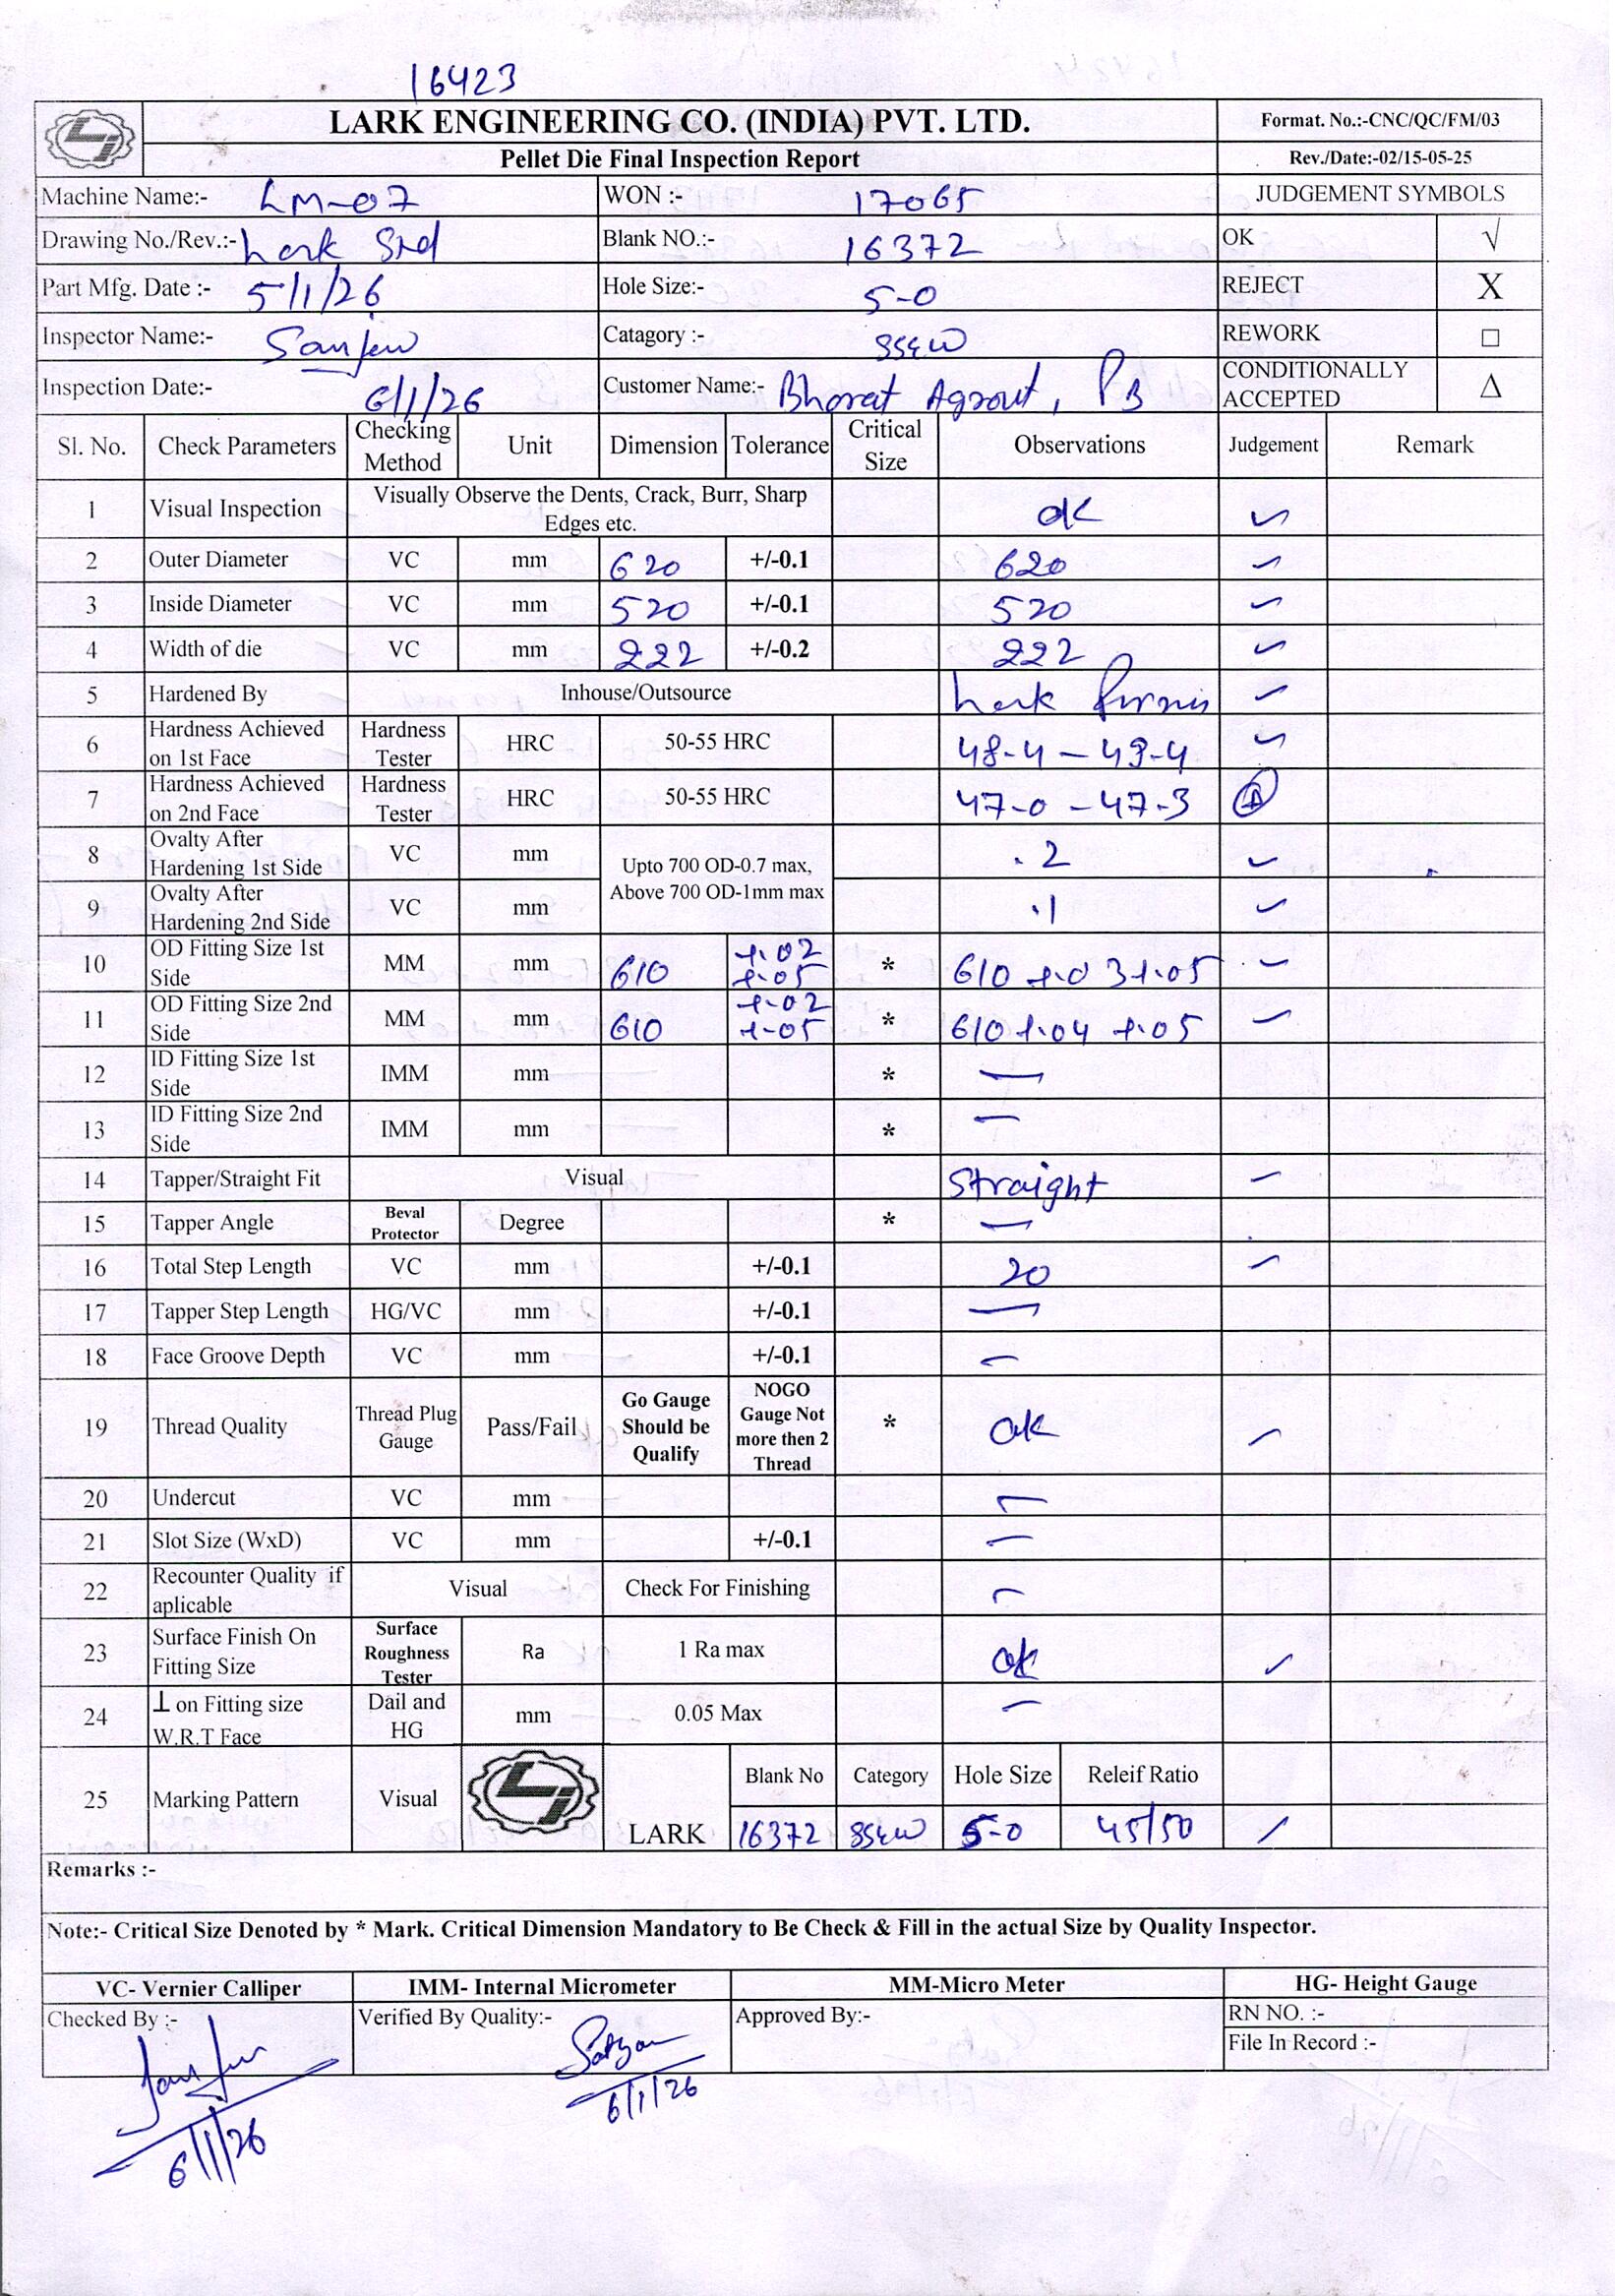 16423
LARK ENGINEERING CO. (INDIA) PVT. LTD.
Format. No.:-CNC/QC/FM/03
Pellet Die Final Inspection Report
Rev./Date:-02/15-05-25
Machine Name:- LM-07 WON :- 17065 JUDGEMENT SYMBOLS
Drawing No./Rev.:- Lark Std Blank NO.:- 16372 OK √
Part Mfg. Date :- 5/1/26 Hole Size:- 5-0 REJECT X
Inspector Name:- Sanjew Catagory :- SS4W REWORK □
Inspection Date:- 6/1/26 Customer Name:- Bharat Agrovet, PB CONDITIONALLY ACCEPTED Δ
Sl. No. Check Parameters Checking Method Unit Dimension Tolerance Critical Size Observations Judgement Remark
1 Visual Inspection Visually Observe the Dents, Crack, Burr, Sharp Edges etc. ok ✓
2 Outer Diameter VC mm 620 +/-0.1 620 ✓
3 Inside Diameter VC mm 520 +/-0.1 520 ✓
4 Width of die VC mm 222 +/-0.2 222 ✓
5 Hardened By Inhouse/Outsource Lark ✓
6 Hardness Achieved on 1st Face Hardness Tester HRC 50-55 HRC 48-4 – 49-4 ✓
7 Hardness Achieved on 2nd Face Hardness Tester HRC 50-55 HRC 47-0 – 47-3
8 Ovalty After Hardening 1st Side VC mm Upto 700 OD-0.7 max, Above 700 OD-1mm max .2 ✓
9 Ovalty After Hardening 2nd Side VC mm .1 ✓
10 OD Fitting Size 1st Side MM mm 610 +.02 +.05 * 610 +.03 +.05 ✓
11 OD Fitting Size 2nd Side MM mm 610 +.02 +.05 * 610 +.04 +.05 ✓
12 ID Fitting Size 1st Side IMM mm * —
13 ID Fitting Size 2nd Side IMM mm * —
14 Tapper/Straight Fit Visual Straight ✓
15 Tapper Angle Beval Protector Degree * —
16 Total Step Length VC mm +/-0.1 20 ✓
17 Tapper Step Length HG/VC mm +/-0.1 —
18 Face Groove Depth VC mm +/-0.1 —
19 Thread Quality Thread Plug Gauge Pass/Fail Go Gauge Should be Qualify NOGO Gauge Not more then 2 Thread * ok ✓
20 Undercut VC mm —
21 Slot Size (WxD) VC mm +/-0.1 —
22 Recounter Quality if aplicable Visual Check For Finishing —
23 Surface Finish On Fitting Size Surface Roughness Tester Ra 1 Ra max ok ✓
24 ⊥ on Fitting size W.R.T Face Dail and HG mm 0.05 Max —
25 Marking Pattern Visual LARK Blank No Category Hole Size Releif Ratio
16372 SS4W 5-0 45/50 ✓
Remarks :-
Note:- Critical Size Denoted by * Mark. Critical Dimension Mandatory to Be Check & Fill in the actual Size by Quality Inspector.
VC- Vernier Calliper IMM- Internal Micrometer MM-Micro Meter HG- Height Gauge
Checked By :- Verified By Quality:- Satyam Approved By:- RN NO. :-
File In Record :-
6/1/26
6/1/26